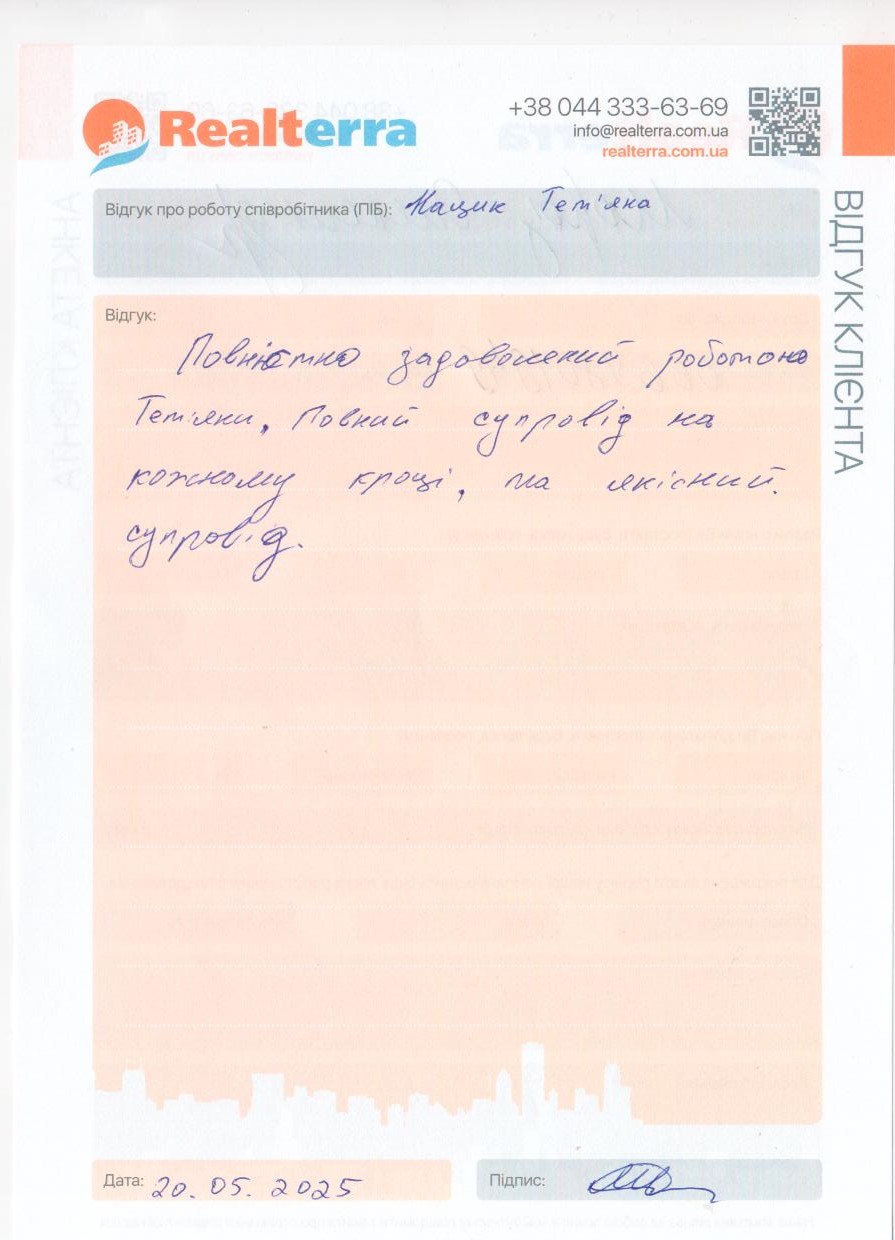 Realterra
+38 044 333-63-69
info@realterra.com.ua
realterra.com.ua
Відгук про роботу співробітника (ПІБ): Кацик Тет'яна
ВІДГУК КЛІЄНТА
Відгук:
Повністю задоволений роботою
Тет'яни, Повний супровід на
кожному кроці, та якісний.
супровід.
Дата: 20.05.2025
Підпис: